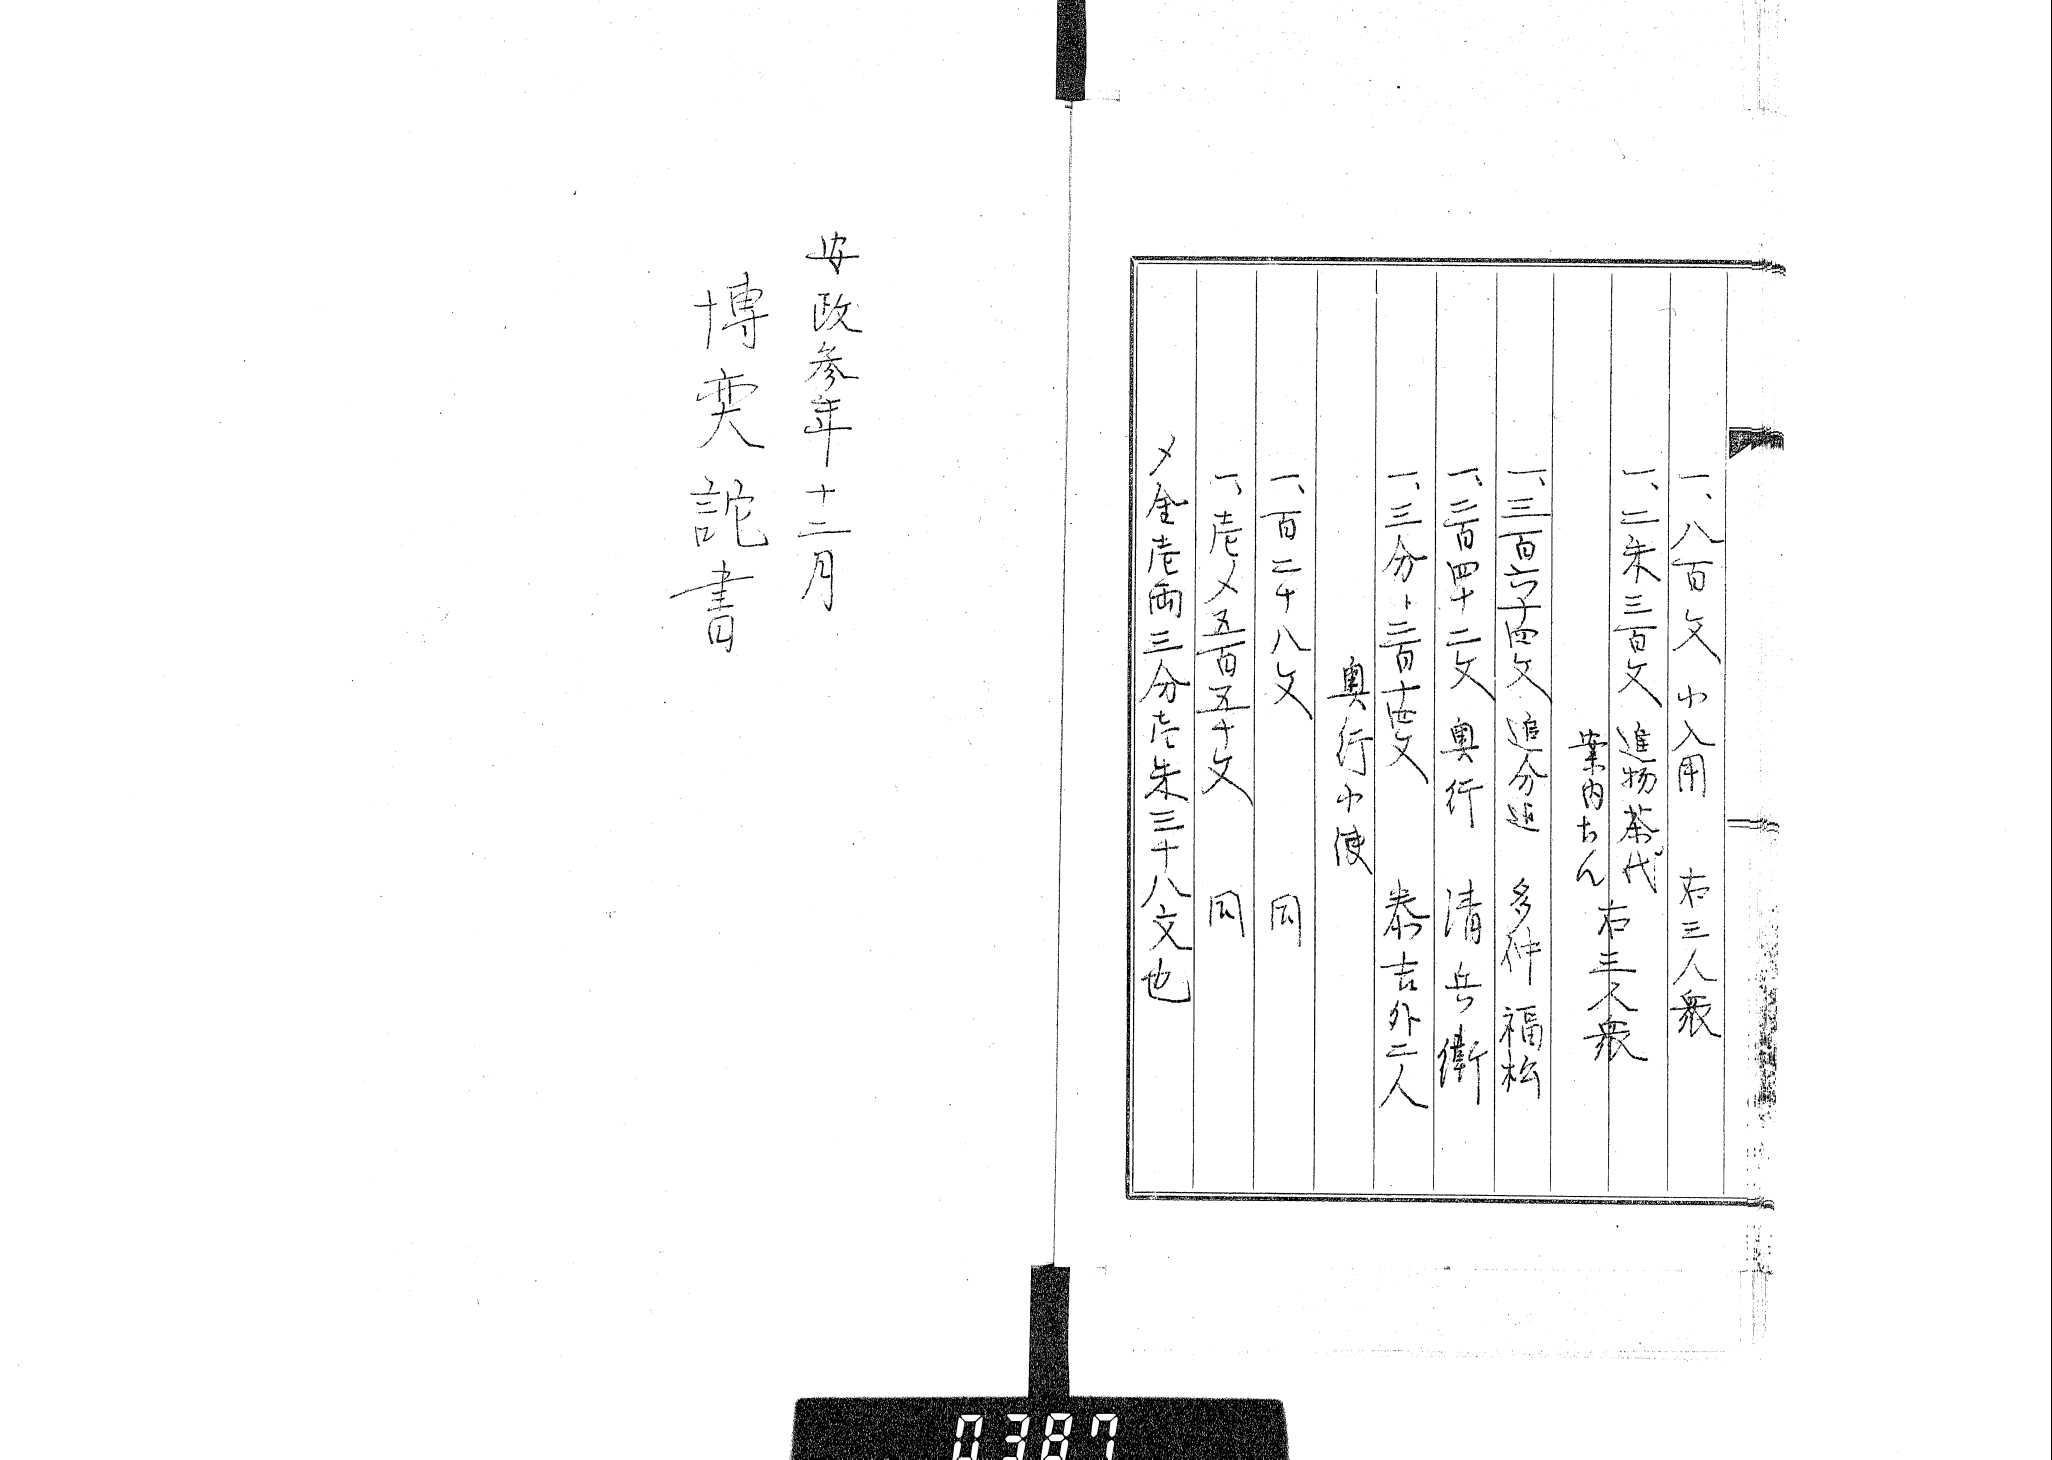 一、八百文 小入用 右三人衆
一、二朱三百文 進物茶代
案内ちん 右三人衆
一、三百六十四文 追分迄 多仲 福松
一、二百四十二文 奥行 清兵衛
一、三分ト二百十四文 泰吉外二人
奥行小使
一、百二十八文 同
一、壱〆五百五十文 同
〆金壱両三分壱朱三十八文也
安政参年十二月
博奕詫書
0387